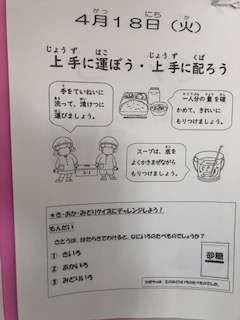 4月18日（火）
上手に運ぼう・上手に配ろう
手をていねいに
洗って、身じたくをして
運びましょう。
一人分の量を確
かめて、きれいに
もりつけましょう。
スープは、底を
よくかきまぜながら
もりつけましょう。
★き・あか・みどりクイズにチャレンジしよう！
もんだい
さとうは、はたらきでわけると、なにいろのたべものでしょうか？
① きいろ
② あかいろ
③ みどりいろ
砂糖